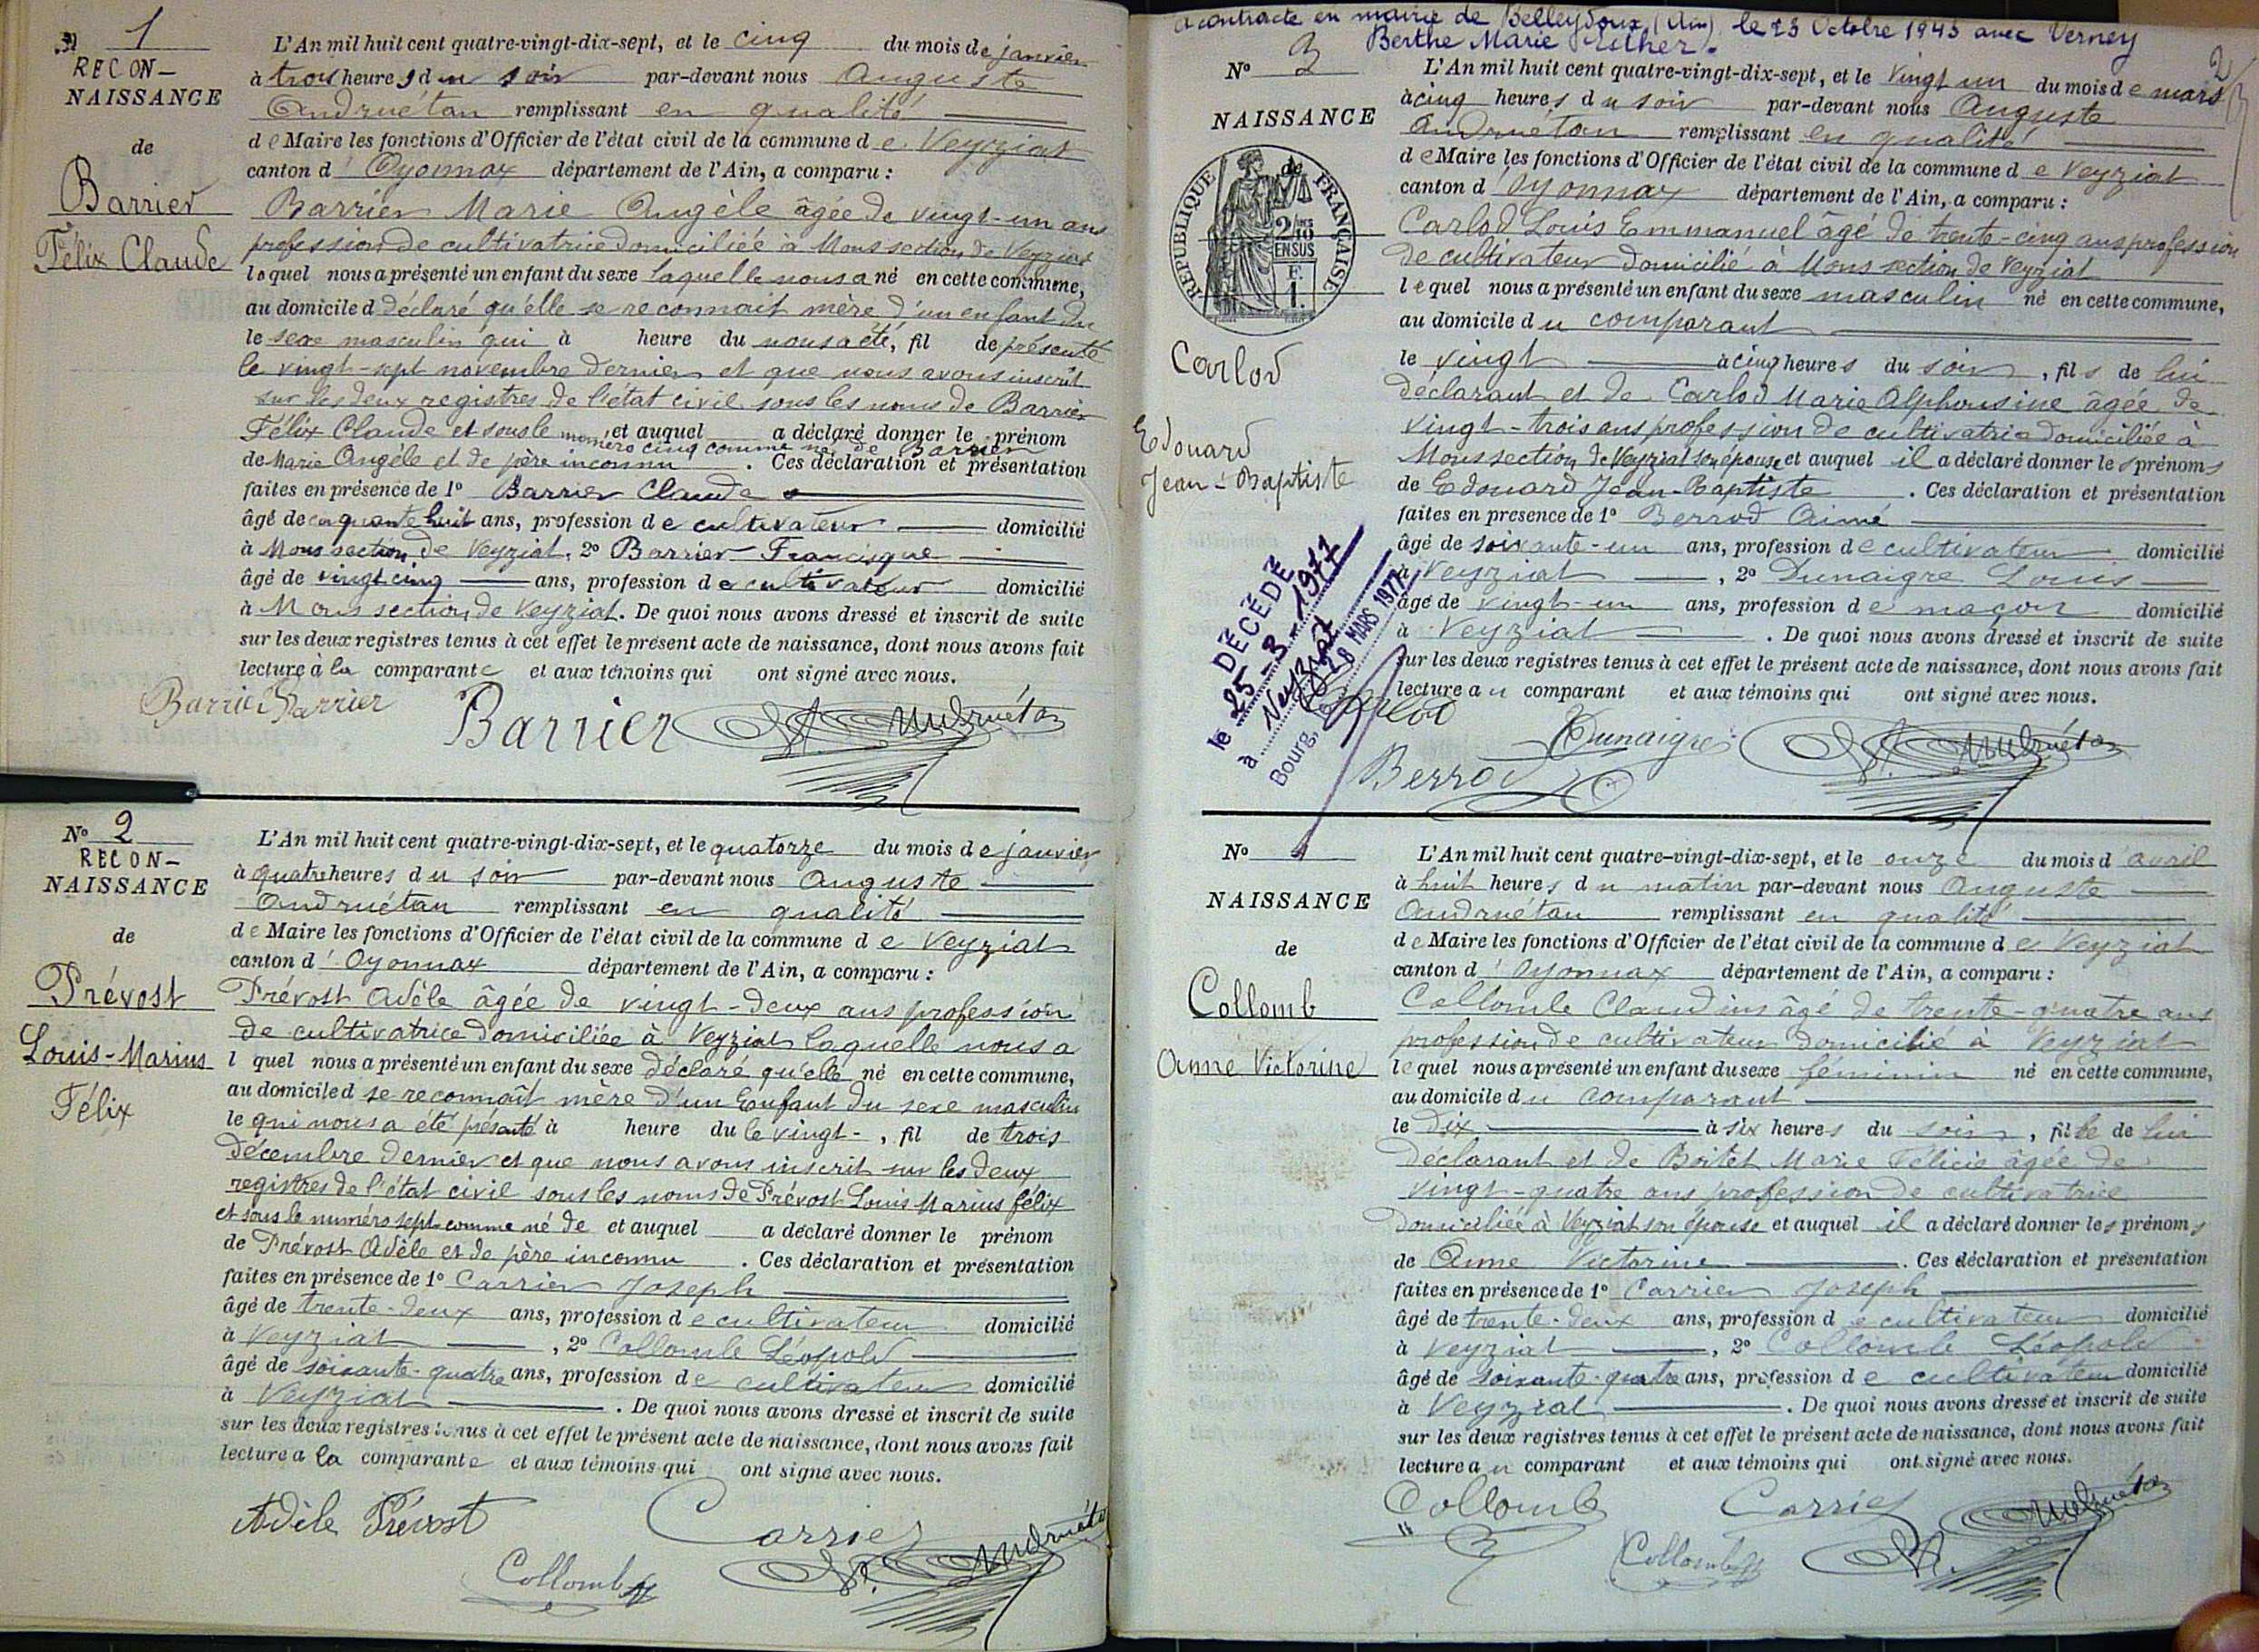 N° 1
RECON-
NAISSANCE
de
Barrier
Félix Claude
L'An mil huit cent quatre-vingt-dix-sept, et le cinq du mois de janvier
à trois heures du soir par-devant nous Auguste
Andruétan remplissant en qualité
de Maire les fonctions d'Officier de l'état civil de la commune de Veyziat
canton d'Oyonnax département de l'Ain, a comparu :
Barrier Marie Angèle âgée de vingt-un ans
profession de cultivatrice domiciliée à Mons section de Veyziat
lequel nous a présenté un enfant du sexe laquelle nous a né en cette commune,
au domicile d déclaré qu'elle se reconnait mère d'un enfant du
le sexe masculin qui à heure du nous a été, fil de présenté
le vingt-sept novembre dernier et que nous avons inscrit
sur les deux registres de l'état civil sous les noms de Barrier
Félix Claude et sous le numéro cinq comme né de Barrier et auquel a déclaré donner le prénom
de Marie Angèle et de père inconnu . Ces déclaration et présentation
faites en présence de 1° Barrier Claude
âgé de cinquante huit ans, profession de cultivateur domicilié
à Mons section de Veyziat, 2° Barrier Francisque
âgé de vingt cinq ans, profession de cultivateur domicilié
à Mons section de Veyziat. De quoi nous avons dressé et inscrit de suite
sur les deux registres tenus à cet effet le présent acte de naissance, dont nous avons fait
lecture à la comparante et aux témoins qui ont signé avec nous.
Barrier Barrier Barrier A. Andruétan
N° 2
RECON-
NAISSANCE
de
Prévost
Louis-Marius
Félix
L'An mil huit cent quatre-vingt-dix-sept, et le quatorze du mois de janvier
à quatre heures du soir par-devant nous Auguste
Andruétan remplissant en qualité
de Maire les fonctions d'Officier de l'état civil de la commune de Veyziat
canton d'Oyonnax département de l'Ain, a comparu :
Prévost Adèle âgée de vingt-deux ans profession
de cultivatrice domiciliée à Veyziat laquelle nous a
l quel nous a présenté un enfant du sexe déclaré qu'elle né en cette commune,
au domicile d se reconnaît mère d'un Enfant du sexe masculin
le qui nous a été présenté à heure du le vingt- , fil de trois
Décembre dernier et que nous avons inscrit sur les deux
registres de l'état civil sous les noms de Prévost Louis Marius félix
et sous le numéro sept comme né de et auquel a déclaré donner le prénom
de Prévost Adèle et de père inconnu . Ces déclaration et présentation
faites en présence de 1° Carrier Joseph
âgé de trente-deux ans, profession de cultivateur domicilié
à Veyziat , 2° Collomb Léopold
âgé de soixante-quatre ans, profession de cultivateur domicilié
à Veyziat . De quoi nous avons dressé et inscrit de suite
sur les deux registres tenus à cet effet le présent acte de naissance, dont nous avons fait
lecture a la comparante et aux témoins qui ont signé avec nous.
Adèle Prévost Carrier
Collomb A. Andruétan
a contracté en mairie de Belleydoux (Ain) le 23 Octobre 1943 avec Verney
Berthe Marie Esther.
2
N° 3
NAISSANCE
de
REPUBLIQUE FRANÇAISE
2/10mes
EN SUS
F.
1.
Carlod
Edouard
Jean-Baptiste
L'An mil huit cent quatre-vingt-dix-sept, et le Vingt un du mois de mars
à cinq heures du soir par-devant nous Auguste
Andruétan remplissant en qualité
de Maire les fonctions d'Officier de l'état civil de la commune de Veyziat
canton d'Oyonnax département de l'Ain, a comparu :
Carlod Louis Emmanuel âgé de trente-cinq ans profession
de cultivateur domicilié à Mons section de Veyziat
lequel nous a présenté un enfant du sexe masculin né en cette commune,
au domicile du comparant
le vingt à cinq heures du soir, fils de lui
déclarant et de Carlod Marie Alphonsine âgée de
vingt-trois ans profession de cultivatrice domiciliée à
Mons section de Veyziat son épouse et auquel il a déclaré donner les prénoms
de Edouard Jean-Baptiste . Ces déclaration et présentation
faites en présence de 1° Berrod Aimé
âgé de soixante-un ans, profession de cultivateur domicilié
à Veyziat , 2° Dunaigre Louis
âgé de vingt-un ans, profession de maçon domicilié
à Veyziat . De quoi nous avons dressé et inscrit de suite
sur les deux registres tenus à cet effet le présent acte de naissance, dont nous avons fait
lecture au comparant et aux témoins qui ont signé avec nous.
DÉCÉDÉ
le 25-3-1977
à Veyziat
Bourg, le 28 MARS 1977
Carlod Dunaigre A. Andruétan
Berrod
N° 4
NAISSANCE
de
Collomb
Anne Victorine
L'An mil huit cent quatre-vingt-dix-sept, et le onze du mois d'avril
à huit heures du matin par-devant nous Auguste
Andruétan remplissant en qualité
de Maire les fonctions d'Officier de l'état civil de la commune de Veyziat
canton d'Oyonnax département de l'Ain, a comparu :
Collomb Claudius âgé de trente-quatre ans
profession de cultivateur domicilié à Veyziat
lequel nous a présenté un enfant du sexe féminin né en cette commune,
au domicile du comparant
le dix à six heures du soir, fille de lui
Déclarant et de Boitet Marie Félicie âgée de
vingt-quatre ans profession de cultivatrice
domiciliée à Veyziat son épouse et auquel il a déclaré donner les prénoms
de Anne Victorine . Ces déclaration et présentation
faites en présence de 1° Carrier Joseph
âgé de trente-deux ans, profession de cultivateur domicilié
à Veyziat , 2° Collomb Léopold
âgé de soixante-quatre ans, profession de cultivateur domicilié
à Veyziat . De quoi nous avons dressé et inscrit de suite
sur les deux registres tenus à cet effet le présent acte de naissance, dont nous avons fait
lecture au comparant et aux témoins qui ont signé avec nous.
Collomb Carrier A. Andruétan
Collomb